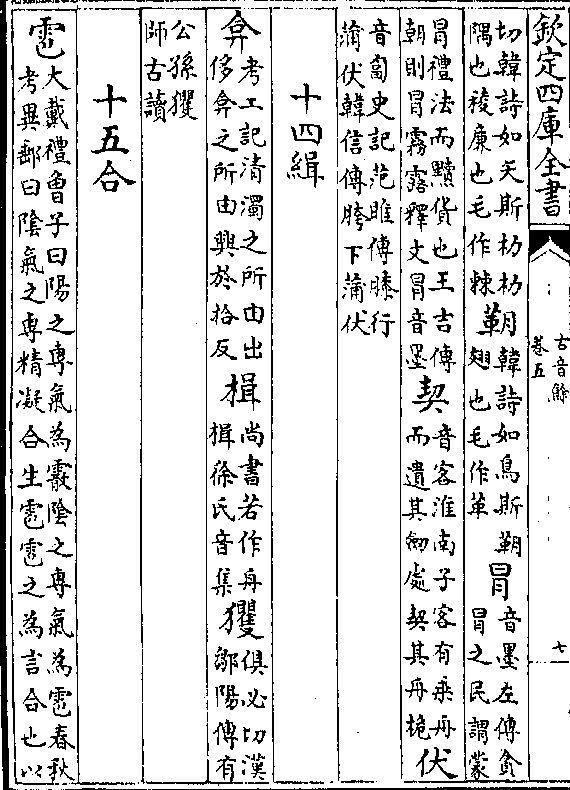 欽定四庫全書
古音餘
卷五
七
切韓詩如矢斯朸朸
隅也稜廉也毛作棘
䩯
韓詩如鳥斯䩯
翅也毛作革
冒
音墨左傳貪
冒之民謂蒙
冒禮法而黷貨也王吉傳
朝則冒霧露釋文冒音墨
契
音客淮南子客有乘舟
而遺其劒處契其舟桅
伏
音匐史記范睢傳膝行
蒲伏韓信傳胯下蒲伏
十四緝
弇
考工記清濁之所由出
侈弇之所由興於拾反
楫
尚書若作舟
楫徐氏音集
玃
俱必切漢
鄒陽傳有
公孫玃
師古讀
十五合
雹
大戴禮曾子曰陽之專氣為霰陰之專氣為雹春秋
考異郵曰陰氣之専精凝合生雹雹之為言合也以